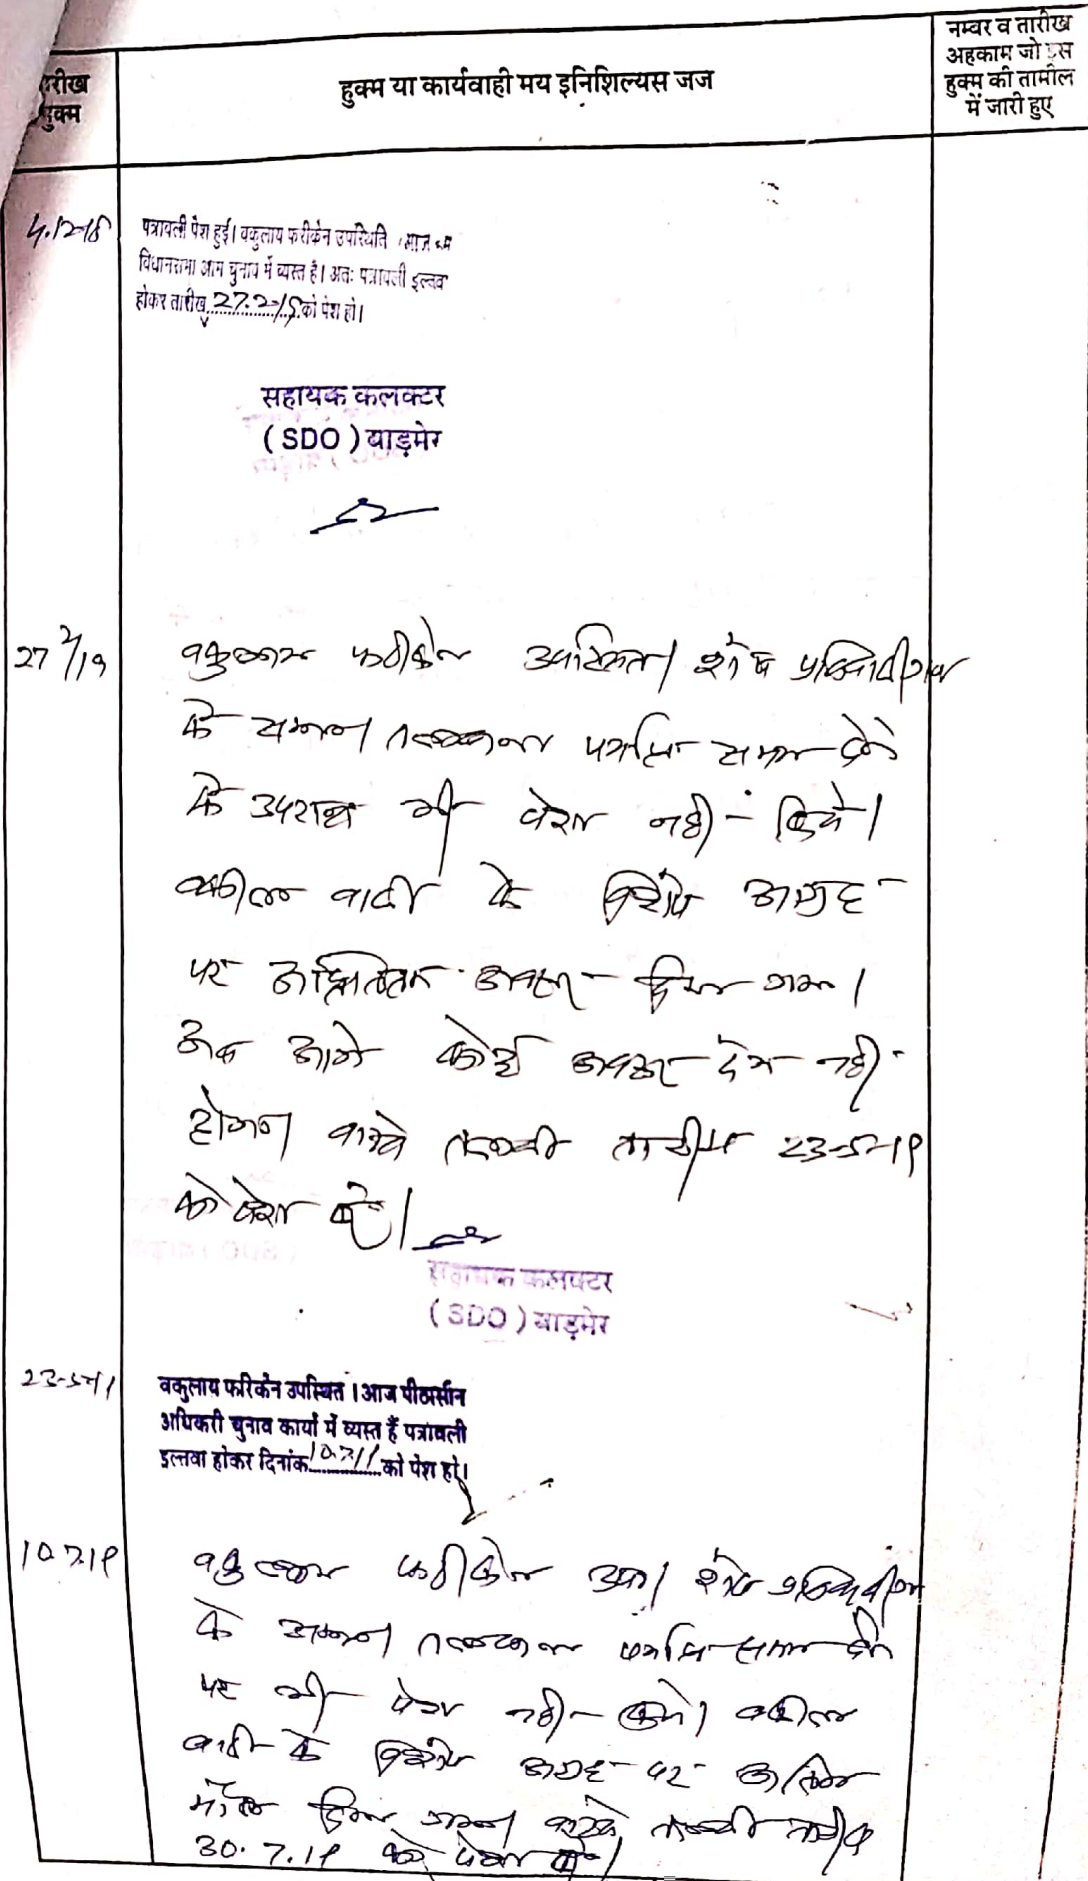 तारीख हुक्म
हुक्म या कार्यवाही मय इनिशिल्यस जज
नम्बर व तारीख
अहकाम जो इस
हुक्म की तामील
में जारी हुए
4.12.18
पत्रावली पेश हुई। वकुलाय फरीकेन उपस्थिति
विधानसभा आम चुनाव में व्यस्त है। अतः पत्रावली इल्तवा
होकर तारीख 27.2.19 को पेश हो।
सहायक कलक्टर
(SDO) बाड़मेर
27/2/19
वकुलाय फरीकेन उपस्थित। शेष प्रतिवादीगण
के सम्मन तलबाना पर्याप्त समय देने
के उपरान्त भी पेश नहीं किये।
वकील वादी के विशेष आग्रह
पर अवसर दिया गया।
अब आगे कोई अवसर देय नहीं
होगा। वास्ते तलबी तारीख 23-5-19
को पेश हो।
सहायक कलक्टर
(SDO) बाड़मेर
23-5-19
वकुलाय फरिकेन उपस्थित। आज पीठासीन
अधिकरी चुनाव कार्यो में व्यस्त हैं पत्रावली
इल्तवा होकर दिनांक 10.7.19 को पेश हो।
10.7.19
वकुलाय फरीकेन उप.। शेष प्रतिवादीगण
के सम्मन तलबाना पर्याप्त समय देने
पर भी पेश नहीं किये। वकील
वादी के विशेष आग्रह पर अन्तिम
मौका दिया गया। वास्ते तलबी तारीख
30.7.19 को पेश हो।